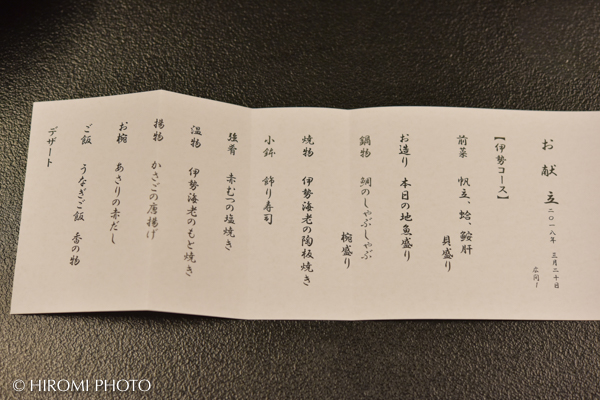 お献立
二〇一八年 三月二十日
広間1
【伊勢コース】
前菜 帆立、蛤、鮟肝
貝盛り
お造り 本日の地魚盛り
鍋物 鯛のしゃぶしゃぶ
椀盛り
焼物 伊勢海老の陶板焼き
小鉢 飾り寿司
強肴 赤むつの塩焼き
温物 伊勢海老のもと焼き
揚物 かさごの唐揚げ
お椀 あさりの赤だし
ご飯 うなぎご飯 香の物
デザート
© HIROMI PHOTO